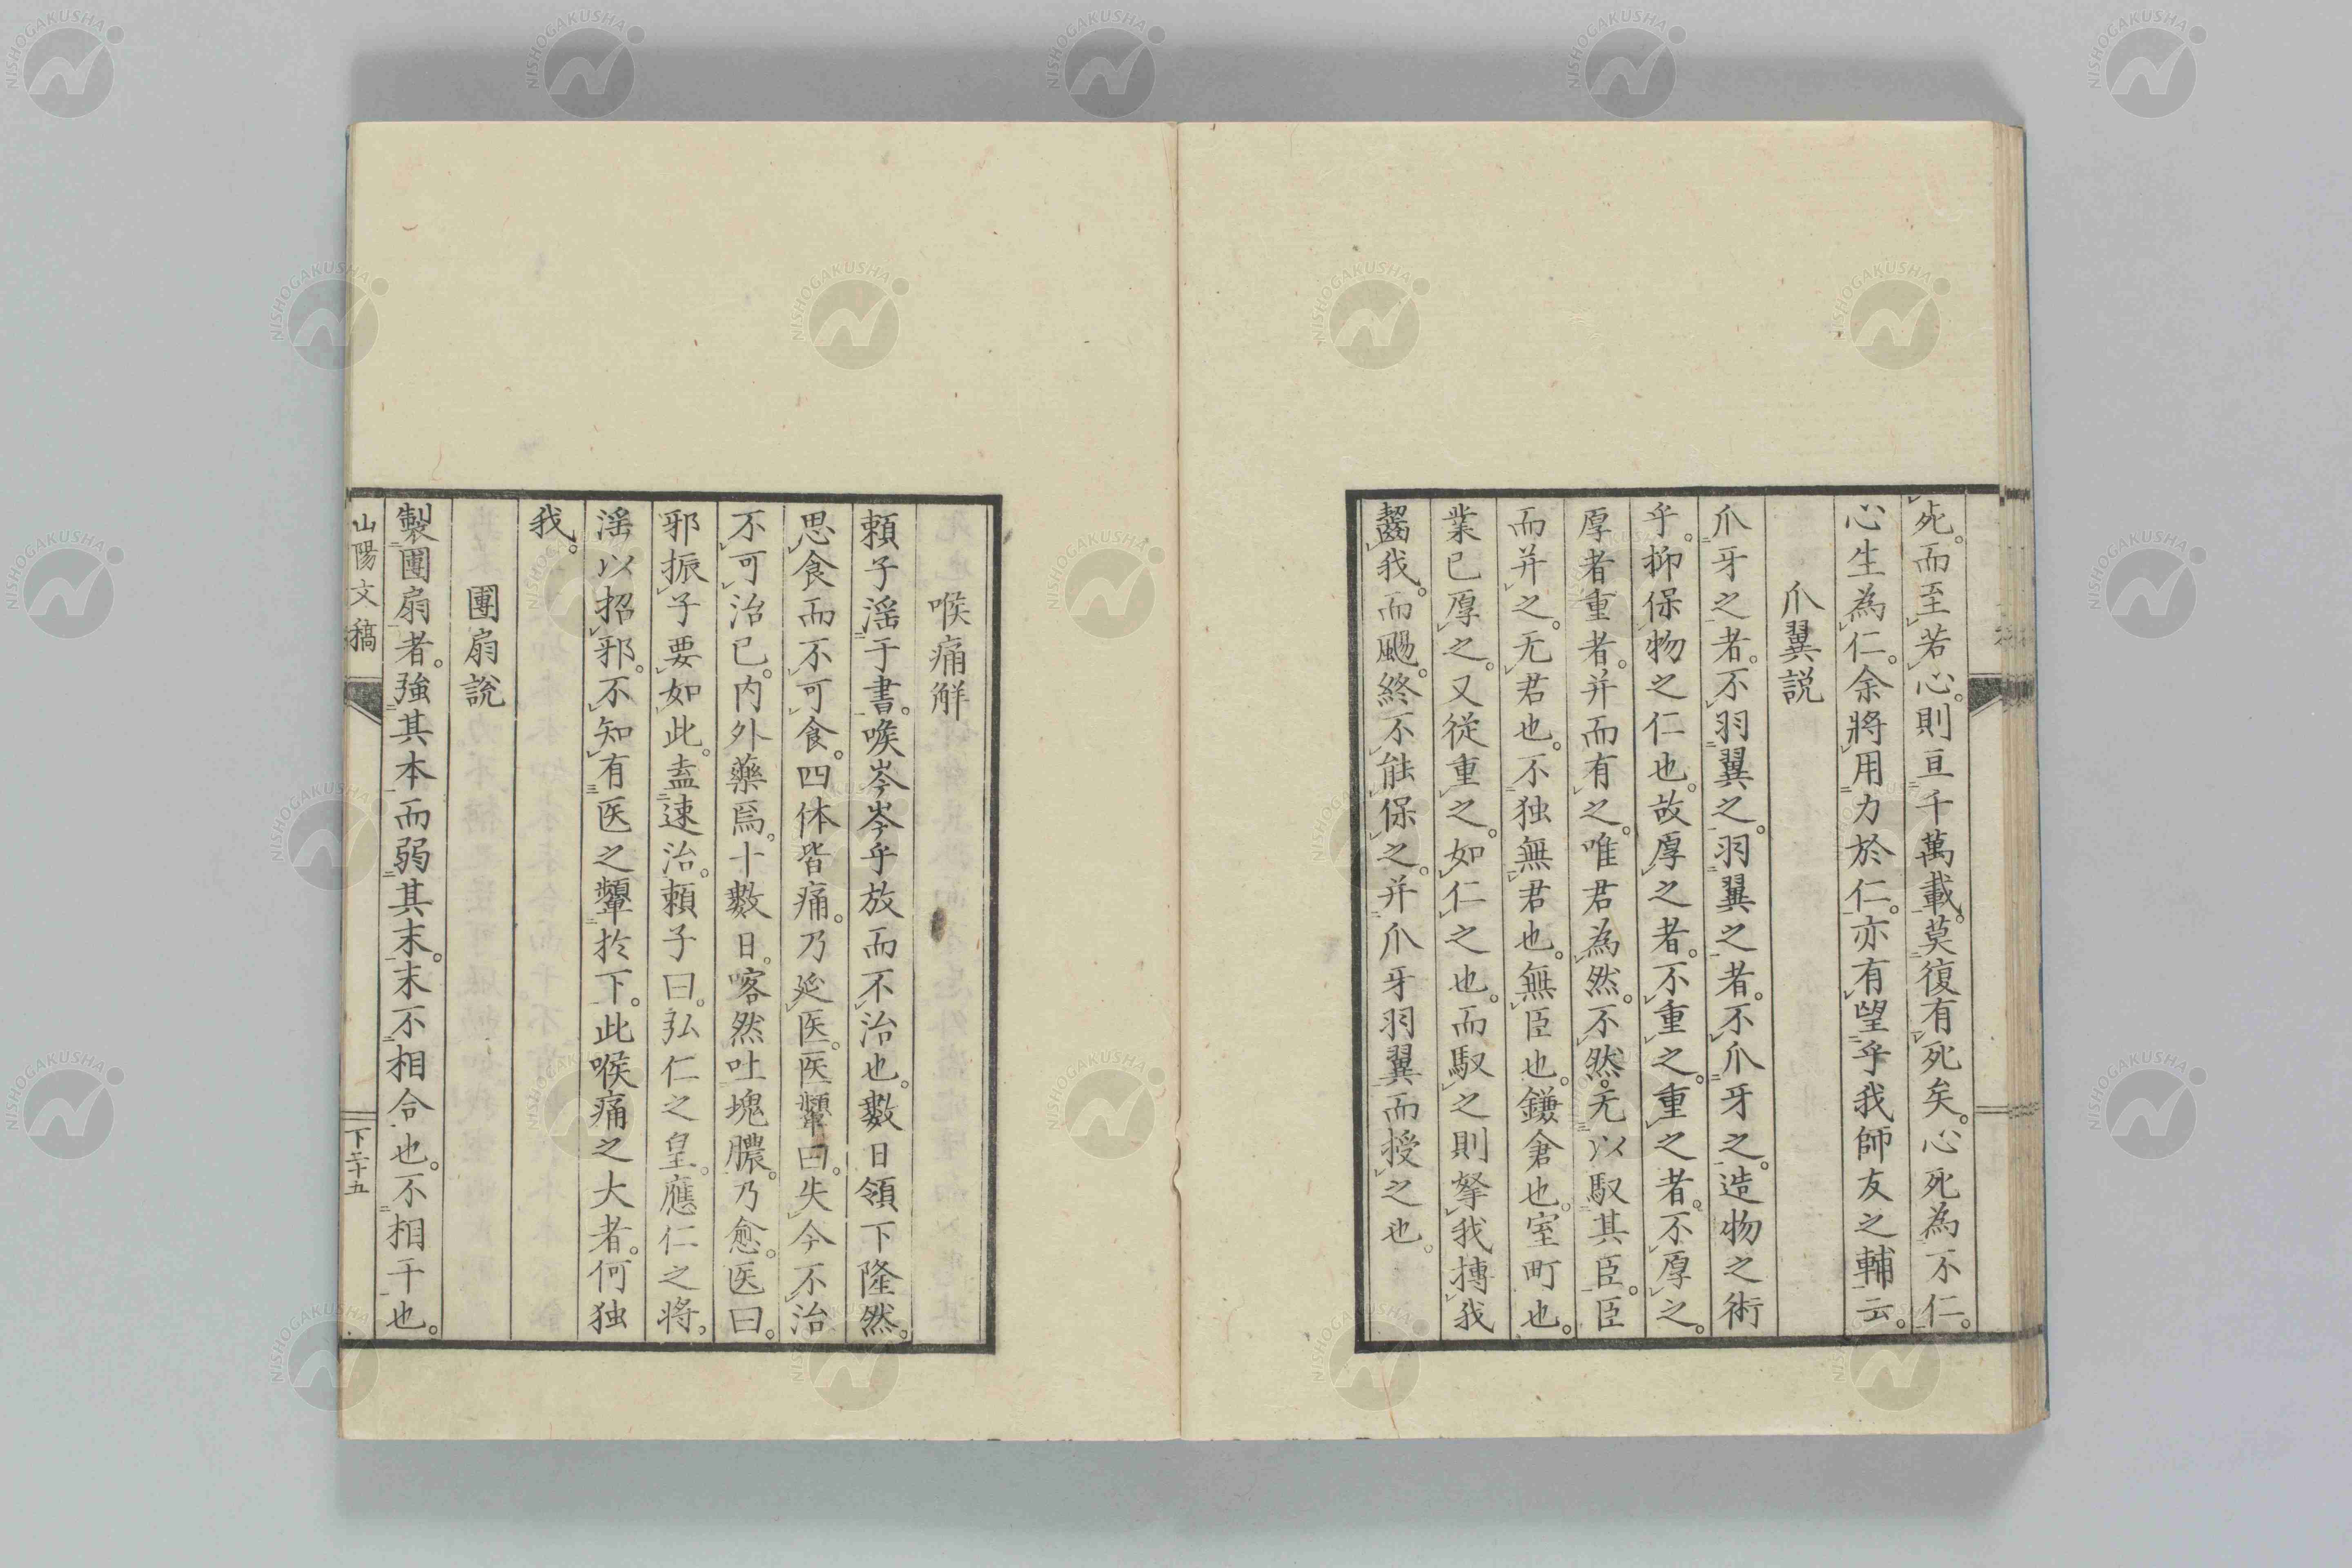 死。而至若心。則亘千萬載。莫復有死矣。心死為不仁。
心生為仁。余將用力於仁。亦有望乎我師友之輔云。
爪翼説
爪牙之者。不羽翼之。羽翼之者。不爪牙之。造物之術
乎。抑保物之仁也。故厚之者。不重之。重之者。不厚之。
厚者重者。并而有之。唯君為然。不然。无以馭其臣。臣
而并之。无君也。不独無君也。無臣也。鎌倉也。室町也。
業已厚之。又從重之。如仁之也。而馭之則拏我搏我
齧我。而颺。終不能保之。并爪牙羽翼而授之也。
喉痛解
頼子淫于書。喉岑岑乎放而不治也。數日領下隆然。
思食而不可食。四体皆痛。乃延医。医顰曰。失今不治
不可治已。内外藥焉。十數日。喀然吐塊膿。乃愈。医曰。
邪振子要如此。盍速治。頼子曰。弘仁之皇。應仁之将。
淫以招邪。不知有医之顰於下。此喉痛之大者。何独
我。
團扇説
製團扇者。強其本而弱其末。末不相合也。不相干也。
山陽文稿
下二十五
NISHOGAKUSHA